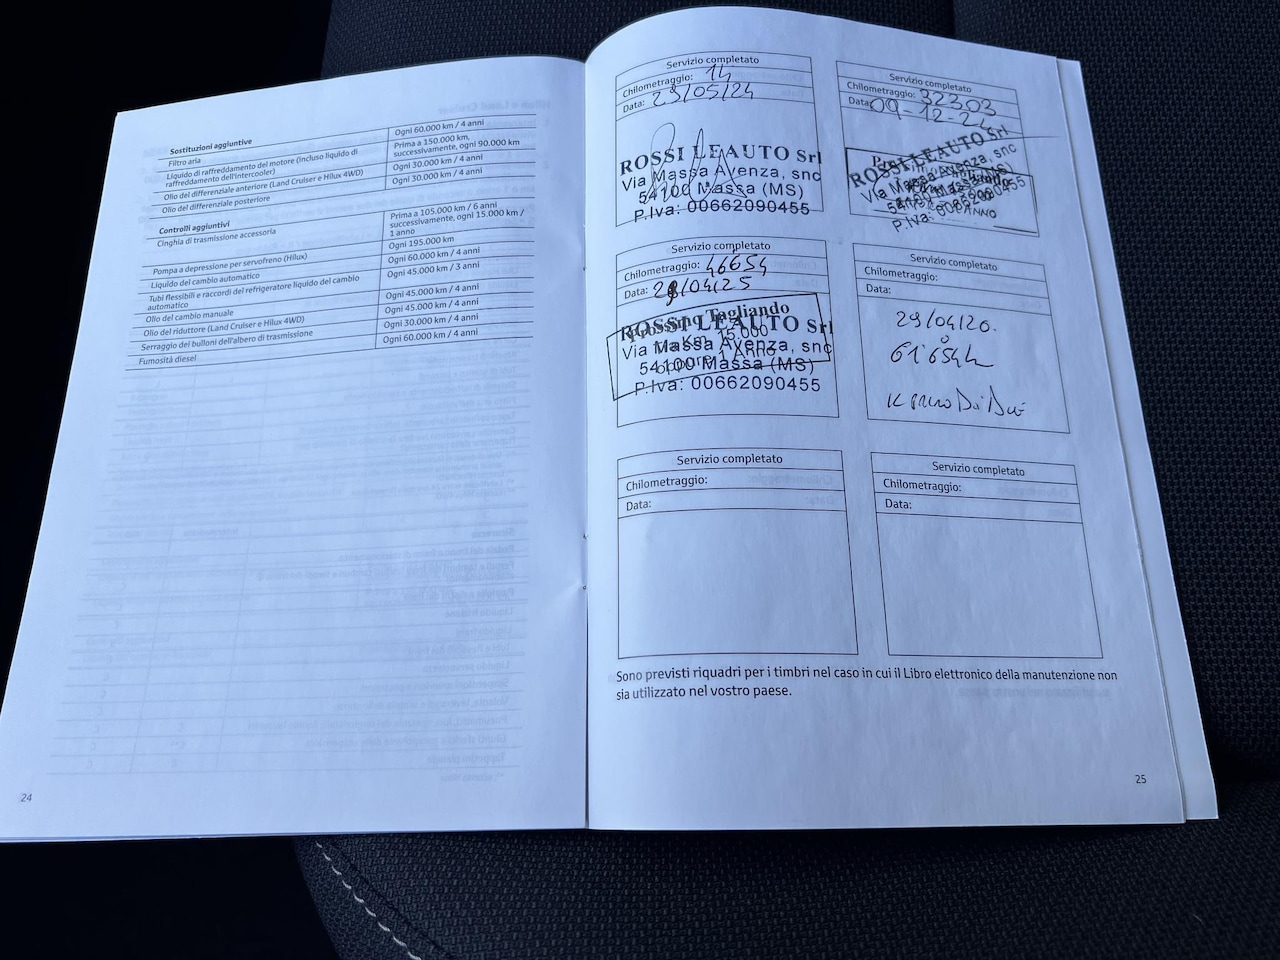 Sostituzioni aggiuntive
Filtro aria Ogni 60.000 km / 4 anni
Liquido di raffreddamento del motore (incluso liquido di raffreddamento dell'intercooler) Prima a 150.000 km, successivamente, ogni 90.000 km
Olio del differenziale anteriore (Land Cruiser e Hilux 4WD) Ogni 30.000 km / 4 anni
Olio del differenziale posteriore Ogni 30.000 km / 4 anni
Controlli aggiuntivi
Cinghia di trasmissione accessoria Prima a 105.000 km / 6 anni successivamente, ogni 15.000 km / 1 anno
Pompa a depressione per servofreno (Hilux) Ogni 195.000 km
Liquido del cambio automatico Ogni 60.000 km / 4 anni
Tubi flessibili e raccordi del refrigeratore liquido del cambio automatico Ogni 45.000 km / 3 anni
Olio del cambio manuale Ogni 45.000 km / 4 anni
Olio del riduttore (Land Cruiser e Hilux 4WD) Ogni 45.000 km / 4 anni
Serraggio dei bulloni dell'albero di trasmissione Ogni 30.000 km / 4 anni
Fumosità diesel Ogni 60.000 km / 4 anni
24
Servizio completato
Chilometraggio: 14
Data: 29/05/24
ROSSI LEAUTO Srl
Via Massa Avenza, snc
54100 Massa (MS)
P.Iva: 00662090455
Servizio completato
Chilometraggio: 32303
Data: 09-12-24
ROSSI LEAUTO Srl
Via Massa Avenza, snc
54100 Massa
P.Iva: 00662090455
ANNO
Servizio completato
Chilometraggio: 46654
Data: 28/04/25
Prossimo Tagliando
ROSSI LEAUTO Srl
15.000
Via Massa Avenza, snc
oppure 1 Anno
54100 Massa (MS)
P.Iva: 00662090455
Servizio completato
Chilometraggio:
Data:
29/04/20.
61654
Servizio completato
Chilometraggio:
Data:
Servizio completato
Chilometraggio:
Data:
Sono previsti riquadri per i timbri nel caso in cui il Libro elettronico della manutenzione non
sia utilizzato nel vostro paese.
25